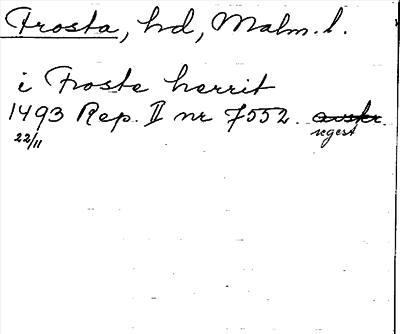 Frosta, hd, Malm. l.
i Froste herrit
1493 Rep. II nr 7552. avskr.
22/11 regest